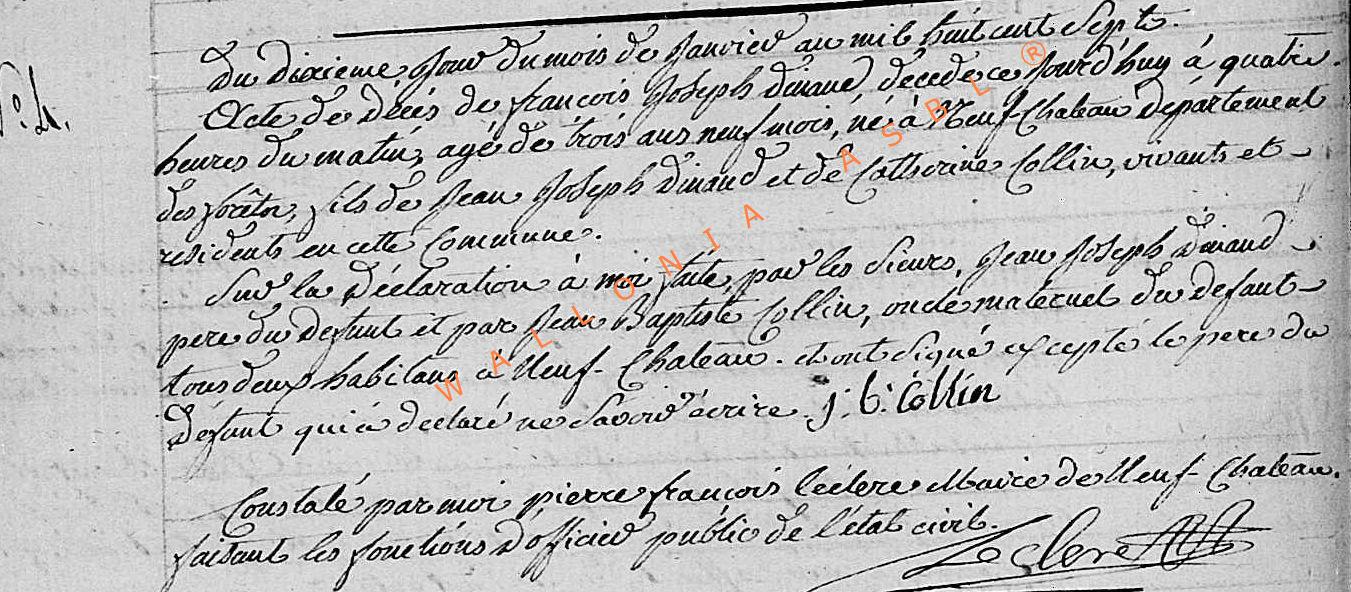 Du dixième Jour du mois de Janvier an mil huit cent Sept.
N.° 4.
Acte de Décés de françois Joseph dinand, décedé ce Jourd'huy à quatre
heures du matin, agé de trois ans neuf mois, né à Neuf-Chateau département
des forêts, fils de Jean Joseph Dinand et de Catherine Collin, vivants et
residents en cette Commune.
Sur la Déclaration à moi faite par les Sieurs, Jean Joseph Dinand
pere du Defunt et par Jean Baptiste Collin, oncle maternel du defunt
tous deux habitans à Neuf-Chateau. et ont Signé excepté le pere du
Défunt qui a declaré ne Savoir écrire. j: b: Collin
Constaté par moi pierre françois Leclere Maire de Neuf-Chateau.
faisant les fonctions d'officier public de l'état civil.
Leclere
WALLONIA ASBL ®